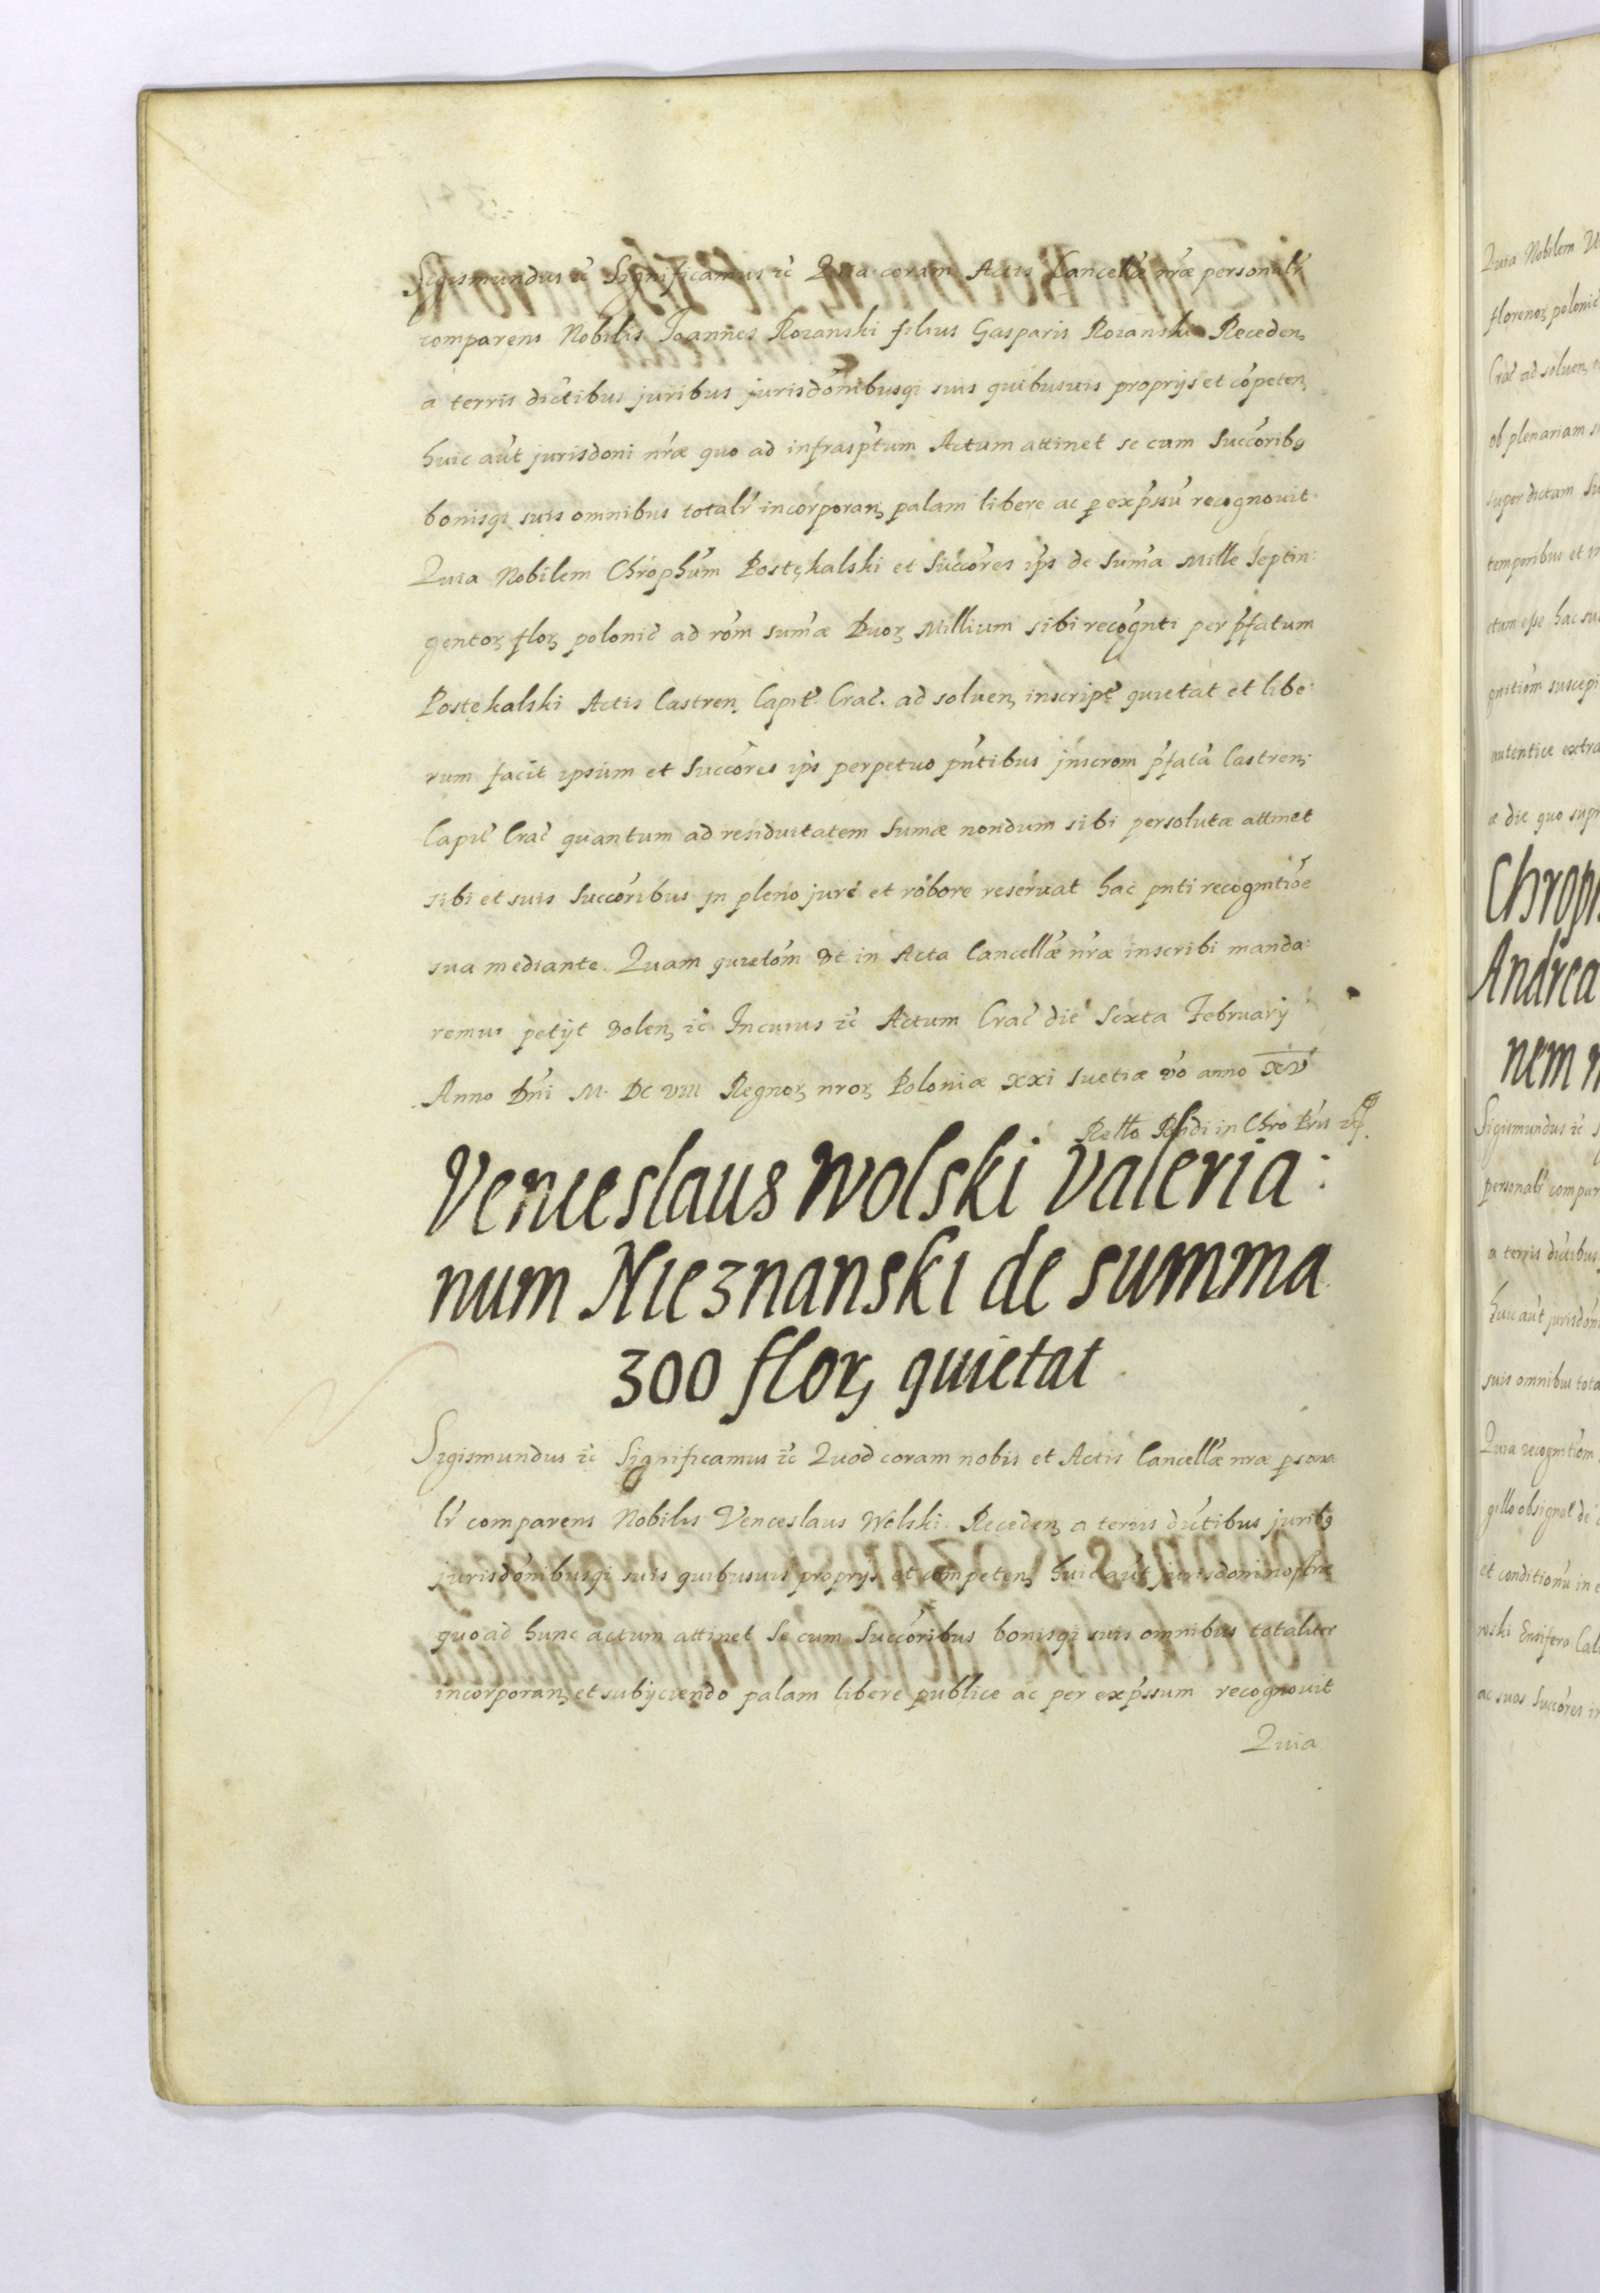 Sigismundus ۊc Significamus ۊc Quia coram Actis Cancellæ nr̃æ personalr̃
comparens Nobilis Joannes Rozanski filius Gasparis Rozanski Receden,
a terris dictibus juribus jurisdõnibusqȝ suis quibusuis proprijs et cõpeten,
huic aũt jurisdoni nr̃æ quo ad infrasp̃tum Actum attinet se cum Succõribȝ
bonisqȝ suis omnibus totalr̃ incorporan, palam libere ac p exp̃ssũ recognouit
Quia Nobilem Chr̃oph̃um Postękalski et Succõres ip̃s de Sum̃a Mille Septin:
gentoꝝ floꝝ polonic̃ ad rõm sum̃æ Duoꝝ Millium sibi recog̃nti per p̃fatum
Postękalski Actis Castren, Capit̃ Crac̃. ad soluen, inscript̃ quietat et libe:
rum facit ipsum et Succõres ip̃s perpetuo p̃ntibus jnscrõm p̃fatã Castren,
Capit̃ Crac̃ quantum ad residuitatem Sumæ nondum sibi persolutæ attinet
sibi et suis Succõribus in pleno jure et robore reseruat hac pñti recognitiõe
sua mediante. Quam quietõm Vt in Acta Cancellæ nr̃æ inscribi manda:
remus petijt Volen, ۊc Incuius ۊc Actum Crac̃ die Sexta Februarij
Anno Dñi M. DC VIII Regnoꝝ nroꝝ Poloniæ XXI Suetiæ Võ anno XV
Rello Rñdi in Chr̃o Pr̃is
Venceslaus Wolski Valeria:
num Nieznanski de summa
300 floꝝ quietat
Sigismundus ۊc Significamus ۊc Quod coram nobis et Actis Cancellæ nræ psona
lr̃ comparens Nobilis Venceslaus Wolski Receden, a terris dictibus juribȝ
jurisdõnibusqȝ suis quibusuis proprijs et competen, huic aũt jurisdoni nostræ
quo ad hunc actum attinet Se cum Succõribus bonisqȝ suis omnibus totaliter
incorporan, et subijciendo palam libere publice ac per exp̃ssum recognouit
Quia
Quia Nobilem
florenoꝝ polonic̃
Crac̃ ad soluen,
ob plenariam
super dictam
temporibus et
ctum esse hac
gnitiõm suscepi
autentice extra
æ die quo supr
Chroph
Andrea
nem
Sigismundus ۊc
personalr̃ compar
a terris dictibus
huic aũt jurisdõni
suis omnibus tota
Quia recognitiõm
gillo obsignat̃ de
et conditionũ in
wski Ensifero Cal
ac suos Succõres